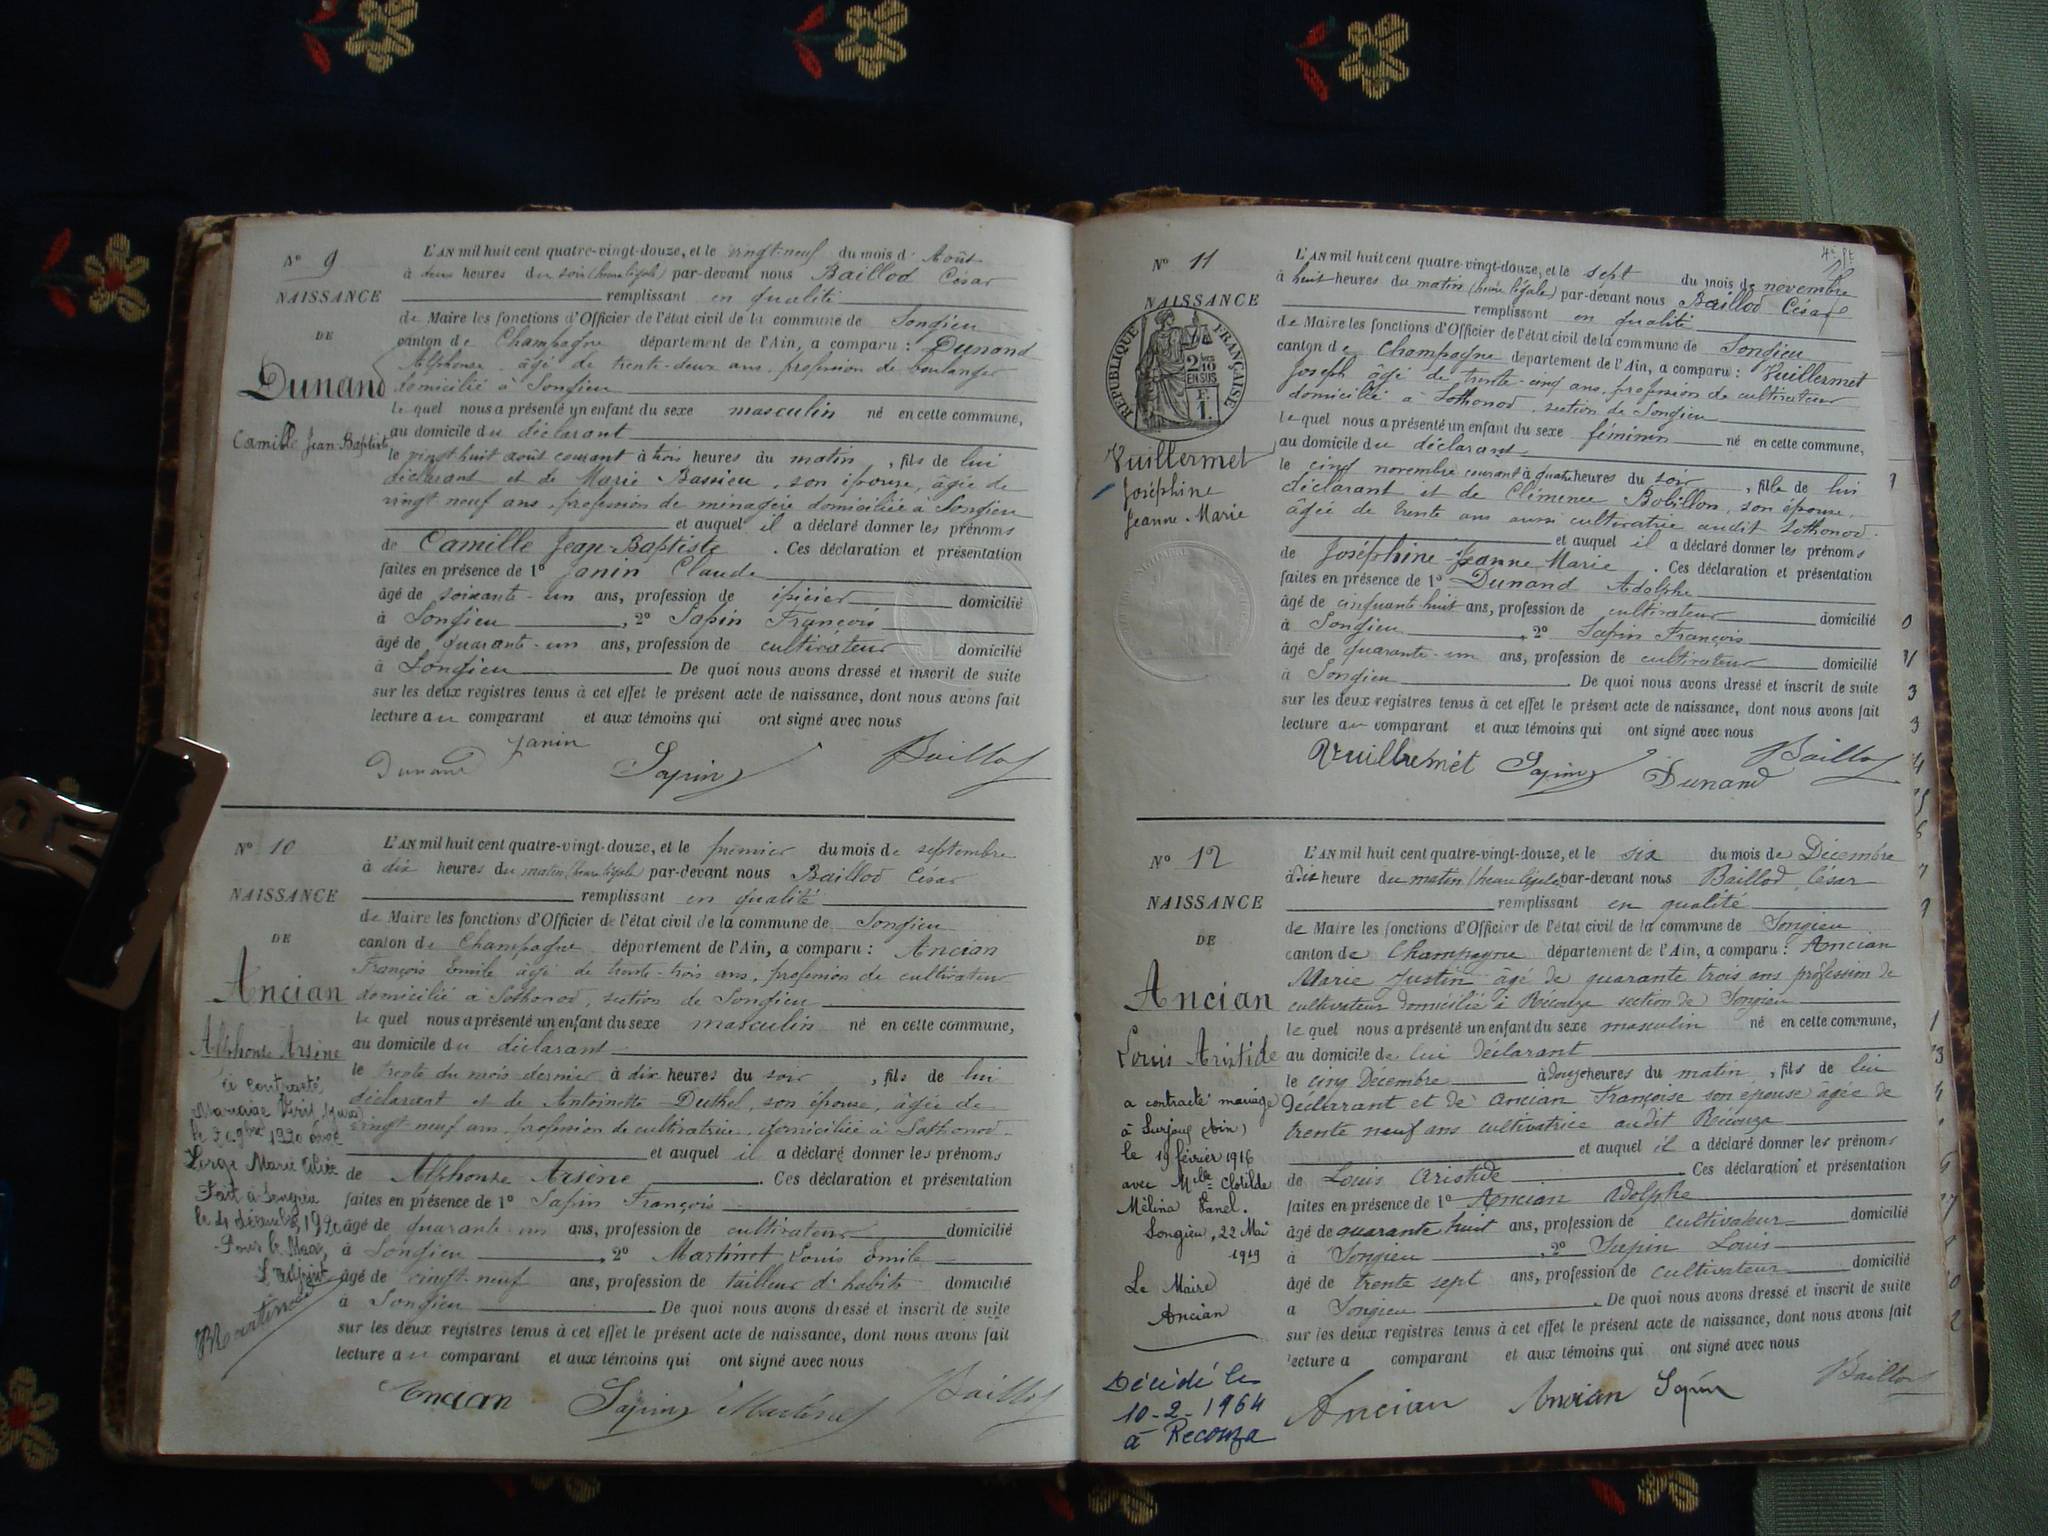 N° 9
NAISSANCE
DE
Dunand
Camille Jean-Baptiste
L'AN mil huit cent quatre-vingt-douze, et le vingt-neuf du mois d' Août
à deux heures du soir (heure légale) par-devant nous Baillod César
remplissant en qualité
de Maire les fonctions d'Officier de l'état civil de la commune de Songieu
canton de Champagne département de l'Ain, a comparu : Dunand
Alphonse, âgé de trente-deux ans, profession de boulanger
domicilié à Songieu
le quel nous a présenté un enfant du sexe masculin né en cette commune,
au domicile du déclarant
le vingt huit août courant à trois heures du matin, fils de lui
déclarant et de Marie Bassieu, son épouse, âgée de
vingt neuf ans, profession de ménagère domiciliée à Songieu
et auquel il a déclaré donner les prénoms
de Camille Jean-Baptiste . Ces déclaration et présentation
faites en présence de 1° Janin Claude
âgé de soixante-un ans, profession de épicier domicilié
à Songieu, 2° Sapin François
âgé de quarante-un ans, profession de cultivateur domicilié
à Songieu De quoi nous avons dressé et inscrit de suite
sur les deux registres tenus à cet effet le présent acte de naissance, dont nous avons fait
lecture au comparant et aux témoins qui ont signé avec nous
Janin
Dunand Sapin Baillod
N° 10
NAISSANCE
DE
Ancian
Alphonse Arsène
a contracté
Mariage
le 1920 avec
Marie
Fait à Songieu
le 4 décembre 1920
Pour le Maire,
L'adjoint
Martinet
L'AN mil huit cent quatre-vingt-douze, et le premier du mois de septembre
à dix heures du matin (heure légale) par-devant nous Baillod César
remplissant en qualité
de Maire les fonctions d'Officier de l'état civil de la commune de Songieu
canton de Champagne département de l'Ain, a comparu : Ancian
François Emile âgé de trente-trois ans, profession de cultivateur
domicilié à Sothonod, section de Songieu
le quel nous a présenté un enfant du sexe masculin né en cette commune,
au domicile du déclarant
le trente du mois dernier à dix heures du soir, fils de lui
déclarant et de Antoinette Duthel, son épouse, âgée de
vingt neuf ans, profession de cultivatrice, domiciliée à Sothonod
et auquel il a déclaré donner les prénoms
de Alphonse Arsène . Ces déclaration et présentation
faites en présence de 1° Sapin François
âgé de quarante un ans, profession de cultivateur domicilié
à Songieu, 2° Martinet Louis Emile
âgé de vingt-neuf ans, profession de tailleur d'habits domicilié
à Songieu De quoi nous avons dressé et inscrit de suite
sur les deux registres tenus à cet effet le présent acte de naissance, dont nous avons fait
lecture au comparant et aux témoins qui ont signé avec nous
Ancian Sapin Martinet Baillod
N° 11
NAISSANCE
RÉPUBLIQUE FRANÇAISE
2/10 EN SUS
F. 1.
Vuillermet
Joséphine
Jeanne Marie
L'AN mil huit cent quatre-vingt-douze, et le sept du mois de novembre
à huit heures du matin (heure légale) par-devant nous Baillod César
remplissant en qualité
de Maire les fonctions d'Officier de l'état civil de la commune de Songieu
canton de Champagne département de l'Ain, a comparu : Vuillermet
Joseph âgé de trente-cinq ans, profession de cultivateur
domicilié à Sothonod, section de Songieu
le quel nous a présenté un enfant du sexe féminin né en cette commune,
au domicile du déclarant
le cinq novembre courant à quatre heures du soir, fille de lui
déclarant et de Clémence Bobillon, son épouse,
âgée de trente ans aussi cultivatrice audit Sothonod.
et auquel il a déclaré donner les prénoms
de Joséphine Jeanne Marie . Ces déclaration et présentation
faites en présence de 1° Dunand Adolphe
âgé de cinquante huit ans, profession de cultivateur domicilié
à Songieu, 2° Sapin François
âgé de quarante-un ans, profession de cultivateur domicilié
à Songieu De quoi nous avons dressé et inscrit de suite
sur les deux registres tenus à cet effet le présent acte de naissance, dont nous avons fait
lecture au comparant et aux témoins qui ont signé avec nous
Vuillermet Sapin Dunand Baillod
N° 12
NAISSANCE
DE
Ancian
Louis Aristide
a contracté mariage
à Surjoux (Ain)
le 19 février 1916
avec Mlle Clotilde
Mélina Vanel.
Songieu, 22 Mai
1919
Le Maire
Ancian
Décédé le
10-2-1964
à Recouza
L'AN mil huit cent quatre-vingt-douze, et le six du mois de Décembre
à dix heure du matin (heure légale) par-devant nous Baillod César
remplissant en qualité
de Maire les fonctions d'Officier de l'état civil de la commune de Songieu
canton de Champagne département de l'Ain, a comparu : Ancian
Marie Justin âgé de quarante trois ans profession de
cultivateur domicilié à Récouza section de Songieu
le quel nous a présenté un enfant du sexe masculin né en cette commune,
au domicile de lui déclarant
le cinq Décembre à douze heures du matin, fils de lui
déclarant et de Ancian Françoise son épouse âgée de
trente neuf ans cultivatrice audit Récouza
et auquel il a déclaré donner les prénoms
de Louis Aristide . Ces déclaration et présentation
faites en présence de 1° Ancian Adolphe
âgé de quarante huit ans, profession de cultivateur domicilié
à Songieu, 2° Sapin Louis
âgé de trente sept ans, profession de cultivateur domicilié
a Songieu . De quoi nous avons dressé et inscrit de suite
sur les deux registres tenus à cet effet le présent acte de naissance, dont nous avons fait
lecture a comparant et aux témoins qui ont signé avec nous
Ancian Ancian Sapin Baillod